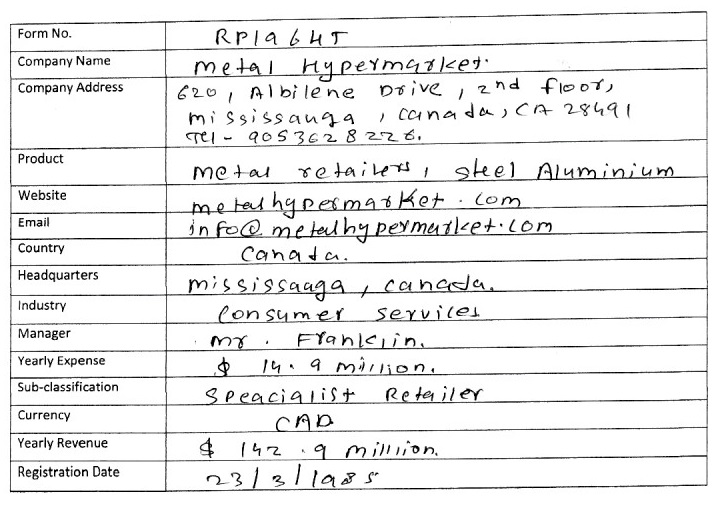 Form No. RP1964T
Company Name Metal Hypermarket.
Company Address 620, Albilene Drive, 2nd floor,
Mississauga, Canada, CA 28491
Tel - 9053628226.
Product Metal retailers, Steel Aluminium
Website metalhypermarket.com
Email info@metalhypermarket.com
Country Canada.
Headquarters Mississauga, Canada.
Industry Consumer services
Manager Mr. Franklin.
Yearly Expense $ 14.9 million.
Sub-classification Speacialist Retailer
Currency CAD
Yearly Revenue $ 142.9 million.
Registration Date 23/3/1985